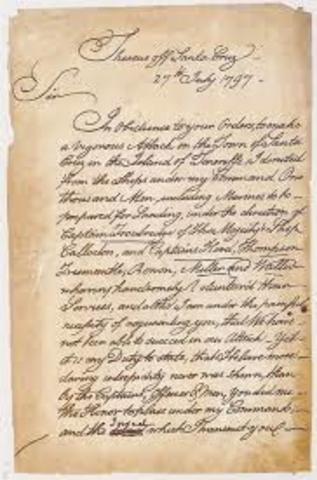 Theseus off Santa Cruz
27th July 1797.
Sir
In Obedience to your Orders, to make
a vigorous Attack on the Town of Santa
Cruz in the Island of Teneriffe, I directed
from the Ships under my Command One
thousand Men, including Marines to be
prepared for Landing, under the direction of
Captain Troubridge of His Majesty's Ship
Culloden, and Captains Hood, Thompson
Fremantle, Bowen, Miller and Waller
who very handsomely Volunteered their
Services, and altho' I am under the painful
necessity of acquainting you, that We have
not been able to succeed in our Attack - Yet
it is my Duty to state, that I believe more
daring intrepidity never was shewn, than
by the Captains, Officers & Men, you did me
the Honor to place under my Command
and the which I transmit you